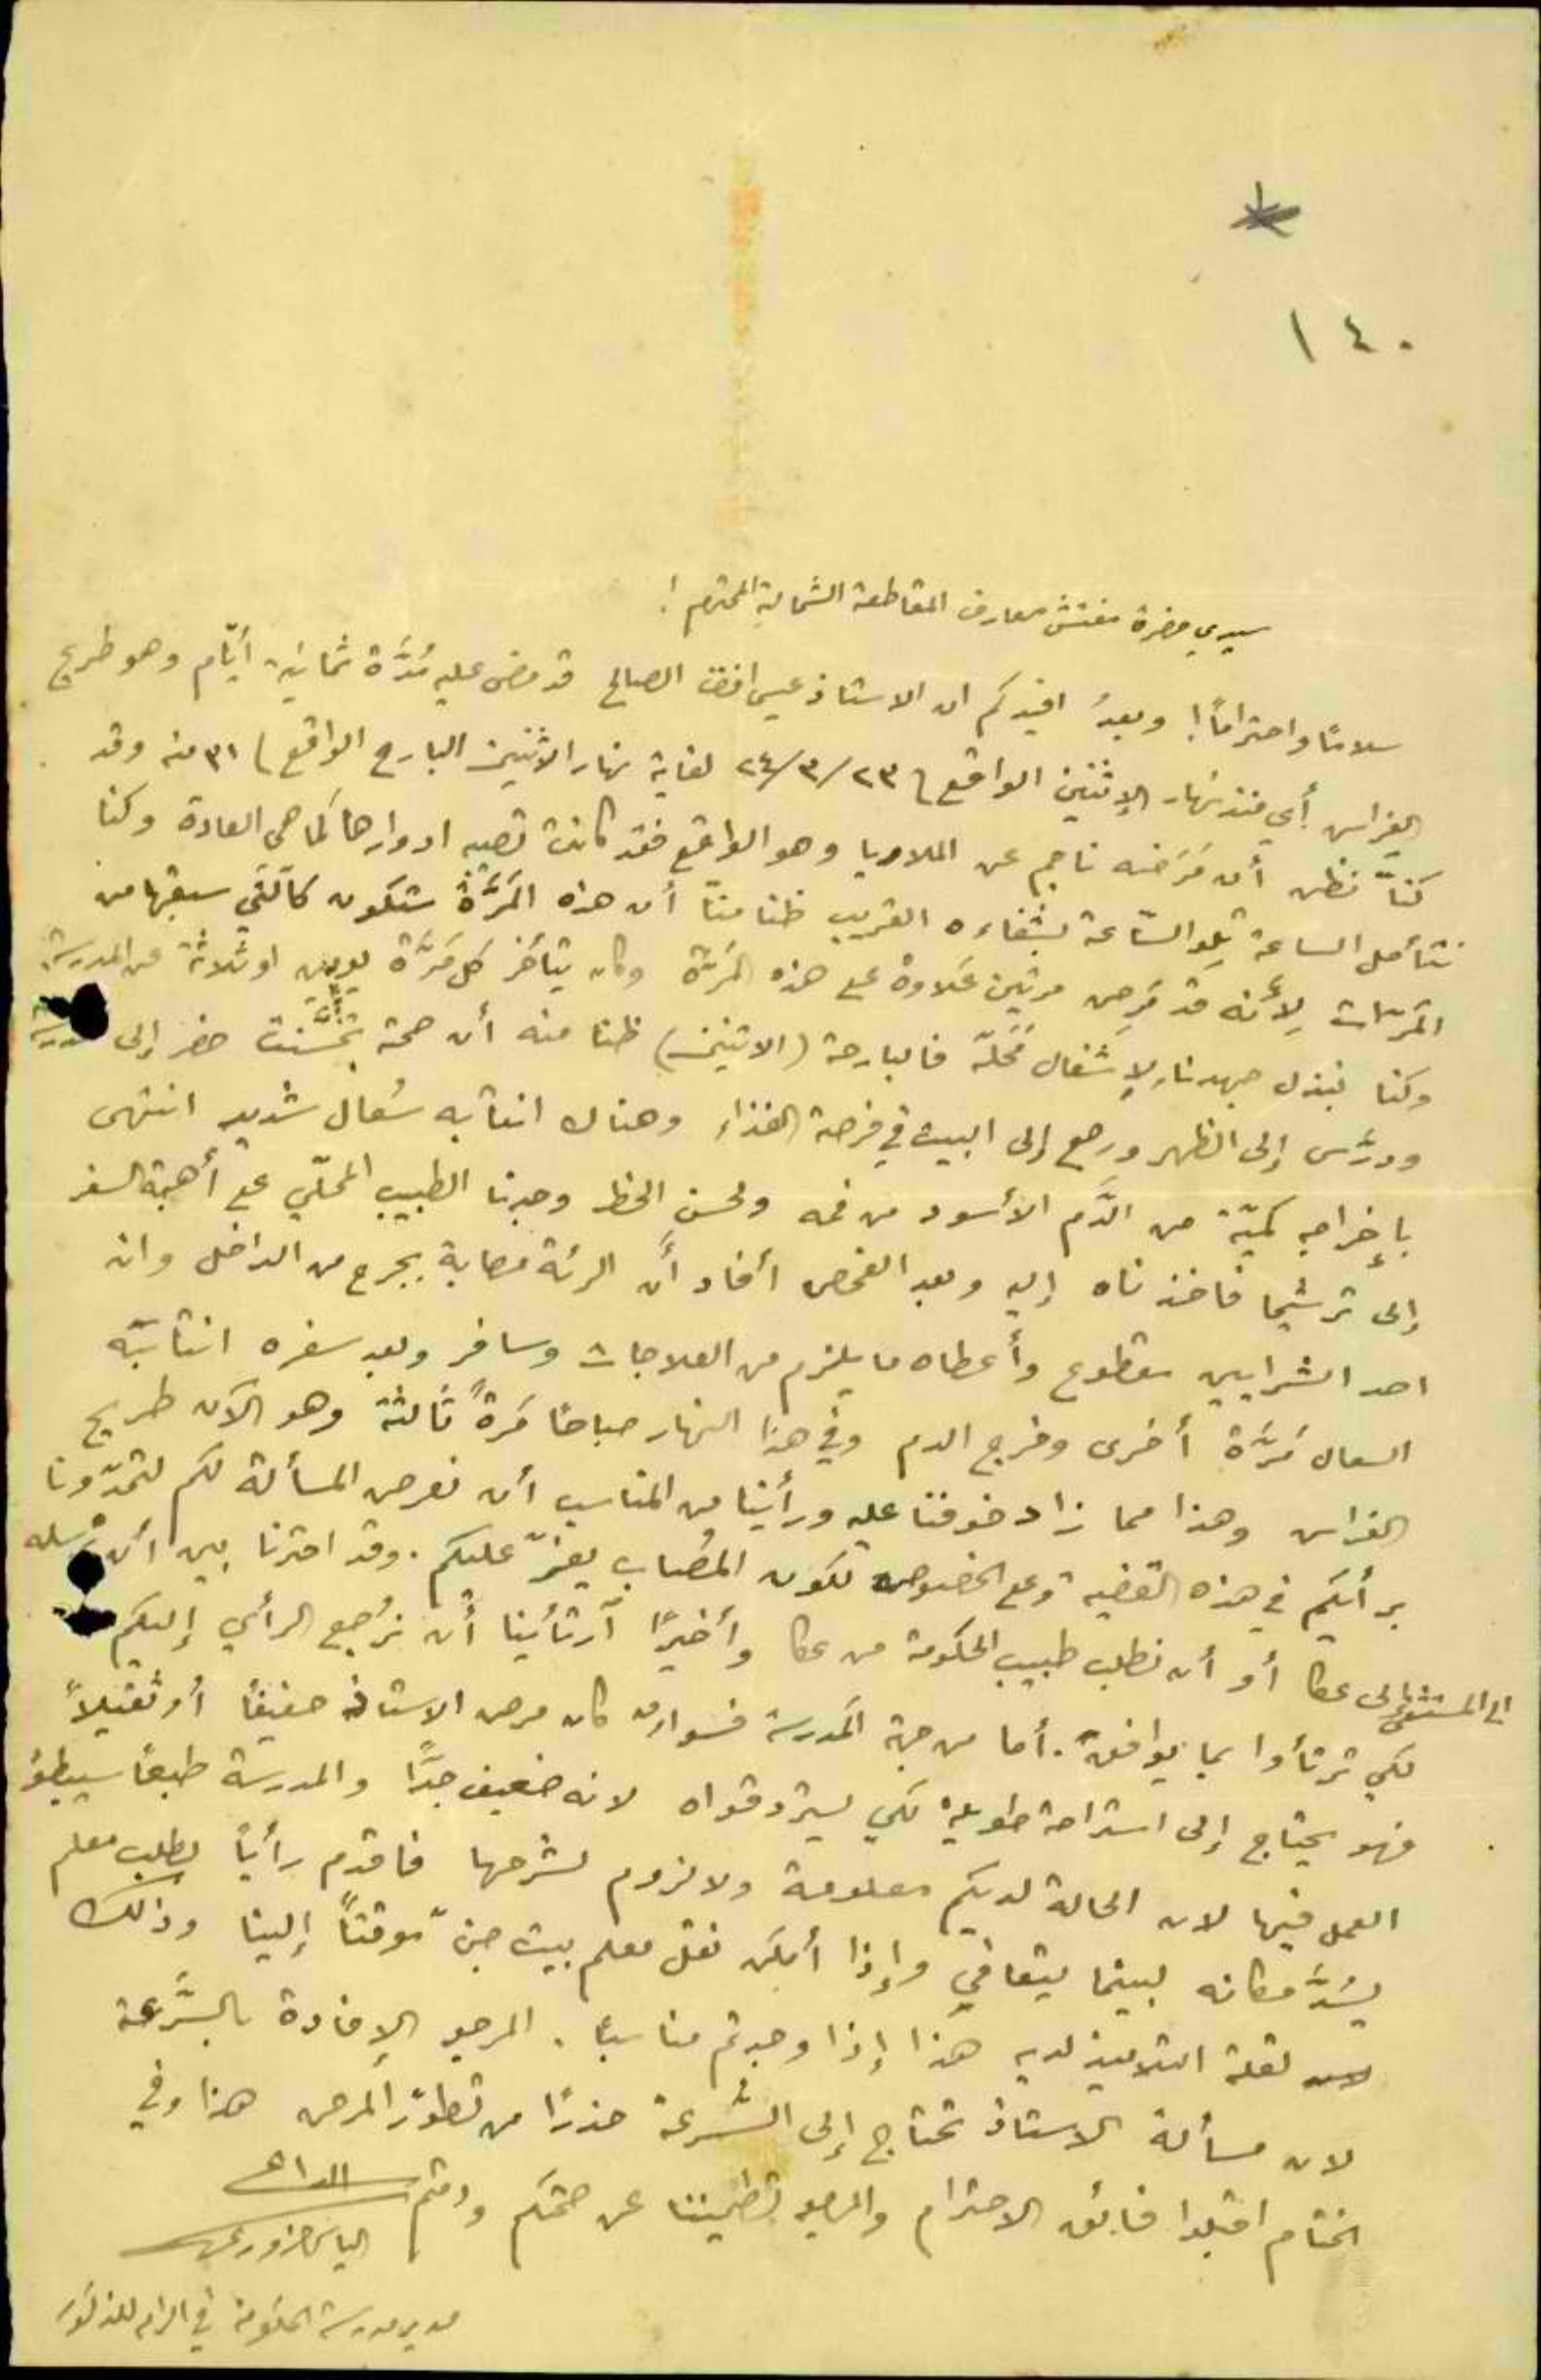 ١٤٠
سيدي حضرة مفتش معارف المقاطعة الشمالية المحترم!
سلامًا واحترامًا! وبعدُ افيدكم ان الاستاذ عيسى افندي الصالح قد مضى عليه مُدَّة ثمانية أيّام وهو طريح
الفراس أي منذ نهار الإثنين الواقع في ٢٣/٣/٢٤ لغاية نهار الاثنين البارح الواقع في ٣١ منه وقد
كنّا نظن أن مَرَضه ناجم عن الملاريا وهو الواقع فقد كانت تصيبه ادوارها كما هي العادة وكنا
نتأمل الساعة تِلو السّاعة بشفاءه القريب ظنا منّا أن هذه المَرَّة ستكون كالّتي سبقتها من
المَرّات لِأَنه قد مَرِض مرتين عَلاوة على هذه المرَّة وكان يتأخر كل مَرَّة يومين او ثلاثة عن المدرسة
وكنا نبذل جهدنا لإشغال مَحَلّه فالبارحة (الاثنين) ظنا منه أن صحته تَحَسَّنت حضر إلى
ودرَّس إلى الظهر ورجع إلى البيت في فرصة الغذاء وهناك انتابه سُعال شديد انتهى
بإخراجه كميّة من الدَّم الأسود من فمه ولحسن الحظ وجدنا الطبيب المحلّي على أهبة السفر
إلى ترشيحا فاخذناه إليه وبعد الفحص أفاد أنَّ الرئة مصابة بجرح من الداخل وان
احد الشرايين مقطوع وأعطاه ما يلزم من العلاجات وسافر وبعد سفره انتابته
السعال مَرَّة أخرى وخرج الدم وفي هذا النهار صباحًا مَرةً ثالثة وهو الآن طريح
الفراس وهذا مما زاد خوفنا عليه ورأينا من المناسب أن نعرض المسألة لكم لتمدّونا
برأيكم في هذه القضية وعلى الخصوص لكون المُصاب يعزّ عليكم. وقد احترنا بين أن نرسله
الى المستشفى الى عكا أو أن نطلب طبيب الحكومة من عكا وأخيرًا آرتأينا أن نُرجع الرأي إليكم
لكي ترتأوا بما يوافق. أما من جهة المدرسة فسواء كان مرض الاستاذ خفيفًا أو ثقيلاً
فهو يحتاج إلى استراحة طويلة لكي يسترد قواه لانه ضعيف جدًّا والمدرسة طبعًا سيبطؤ
العمل فيها لان الحالة لديكم معلومة ولا لزوم لشرحها فاقدم رأيًا بطلب معلم
يسُدَّ مكانه لبينما يتعافى وإذا أمكن نقل معلم بيت جن موقتًا إلينا وذلك
لقلة التلاميذ لديه هذا إذا وجدتم مناسبًا. المرجو الإفادة بالسُّرعة
لان مسألة الاستاذ تحتاج إلى السُّرعة حذرًا من تطوّر المرض هذا وفي
الختام اقبلوا فائق الاحترام والمرجو تطميننا عن صحتكم ودمتم الداعي
الياس
مدير مدرسة الحكومة في الرامه للذكور